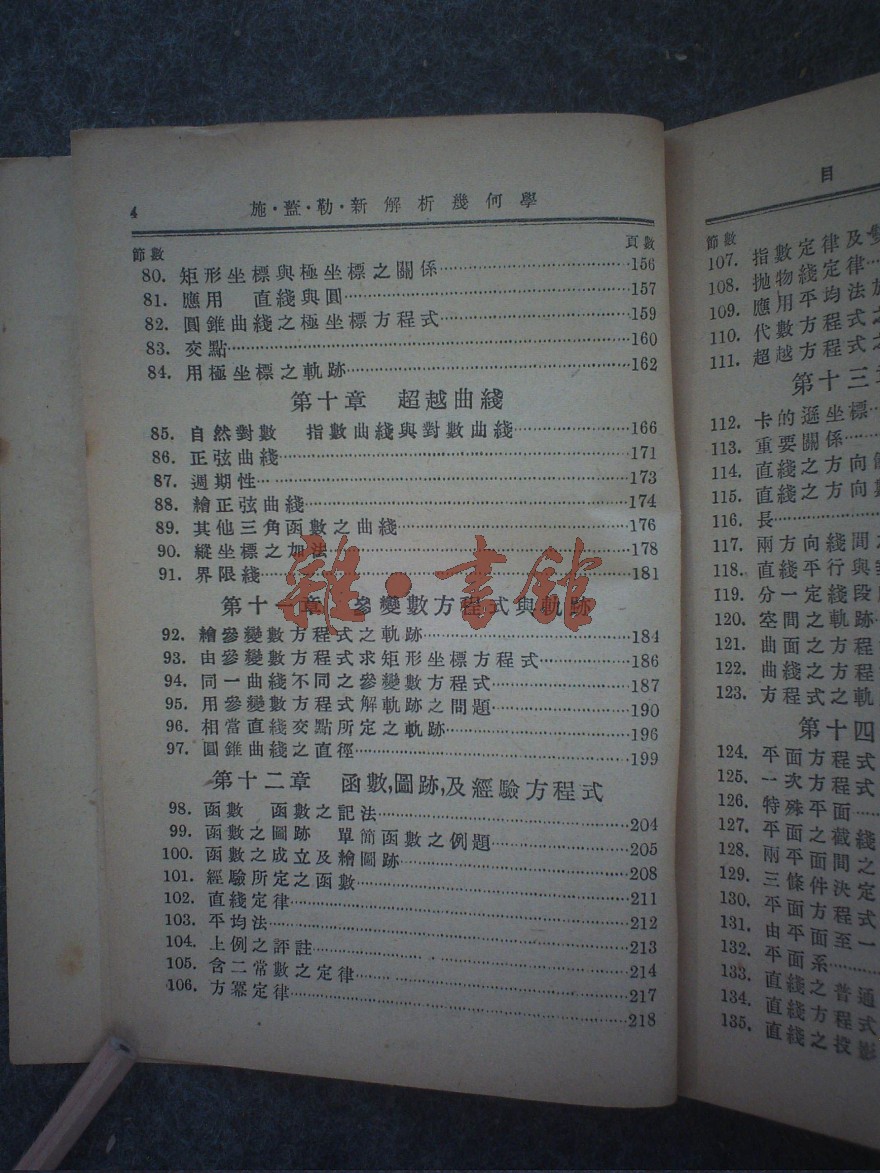 4 施·盇·勒·新解析幾何學
節數 頁數
80. 矩形坐標與極坐標之關係 156
81. 應用 直綫與圓 157
82. 圓錐曲綫之極坐標方程式 159
83. 交點 160
84. 用極坐標之軌跡 162
第十章 超越曲綫
85. 自然對數 指數曲綫與對數曲綫 166
86. 正弦曲綫 171
87. 週期性 173
88. 繪正弦曲綫 174
89. 其他三角函數之曲綫 176
90. 縱坐標之加法 178
91. 界限綫 181
第十一章 參變數方程式與軌跡
92. 繪參變數方程式之軌跡 184
93. 由參變數方程式求矩形坐標方程式 186
94. 同一曲綫不同之參變數方程式 187
95. 用參變數方程式解軌跡之問題 190
96. 相當直綫交點所定之軌跡 196
97. 圓錐曲綫之直徑 199
第十二章 函數,圖跡,及經驗方程式
98. 函數 函數之記法 204
99. 函數之圖跡 單簡函數之例題 205
100. 函數之成立及繪圖跡 208
101. 經驗所定之函數 211
102. 直綫定律 212
103. 平均法 213
104. 上例之評註 214
105. 含二常數之定律 217
106. 方冪定律 218
雜·書館
目
節數
107. 指數定律及
108. 拋物綫定律
109. 應用平均法
110. 代數方程式之
111. 超越方程式之
第十三章
112. 卡的遜坐標
113. 重要關係
114. 直綫之方向
115. 直綫之方向
116. 長
117. 兩方向綫間
118. 直綫平行與
119. 分一定綫段
120. 空間之軌跡
121. 曲面之方程
122. 曲綫之方程
123. 方程式之軌
第十四
124. 平面方程式
125. 一次方程式
126. 特殊平面
127. 平面之截綫
128. 兩平面間之
129. 三條件決定
130. 平面方程式
131. 由平面至一
132. 平面系
133. 直綫之普通
134. 直綫方程式
135. 直綫之投影